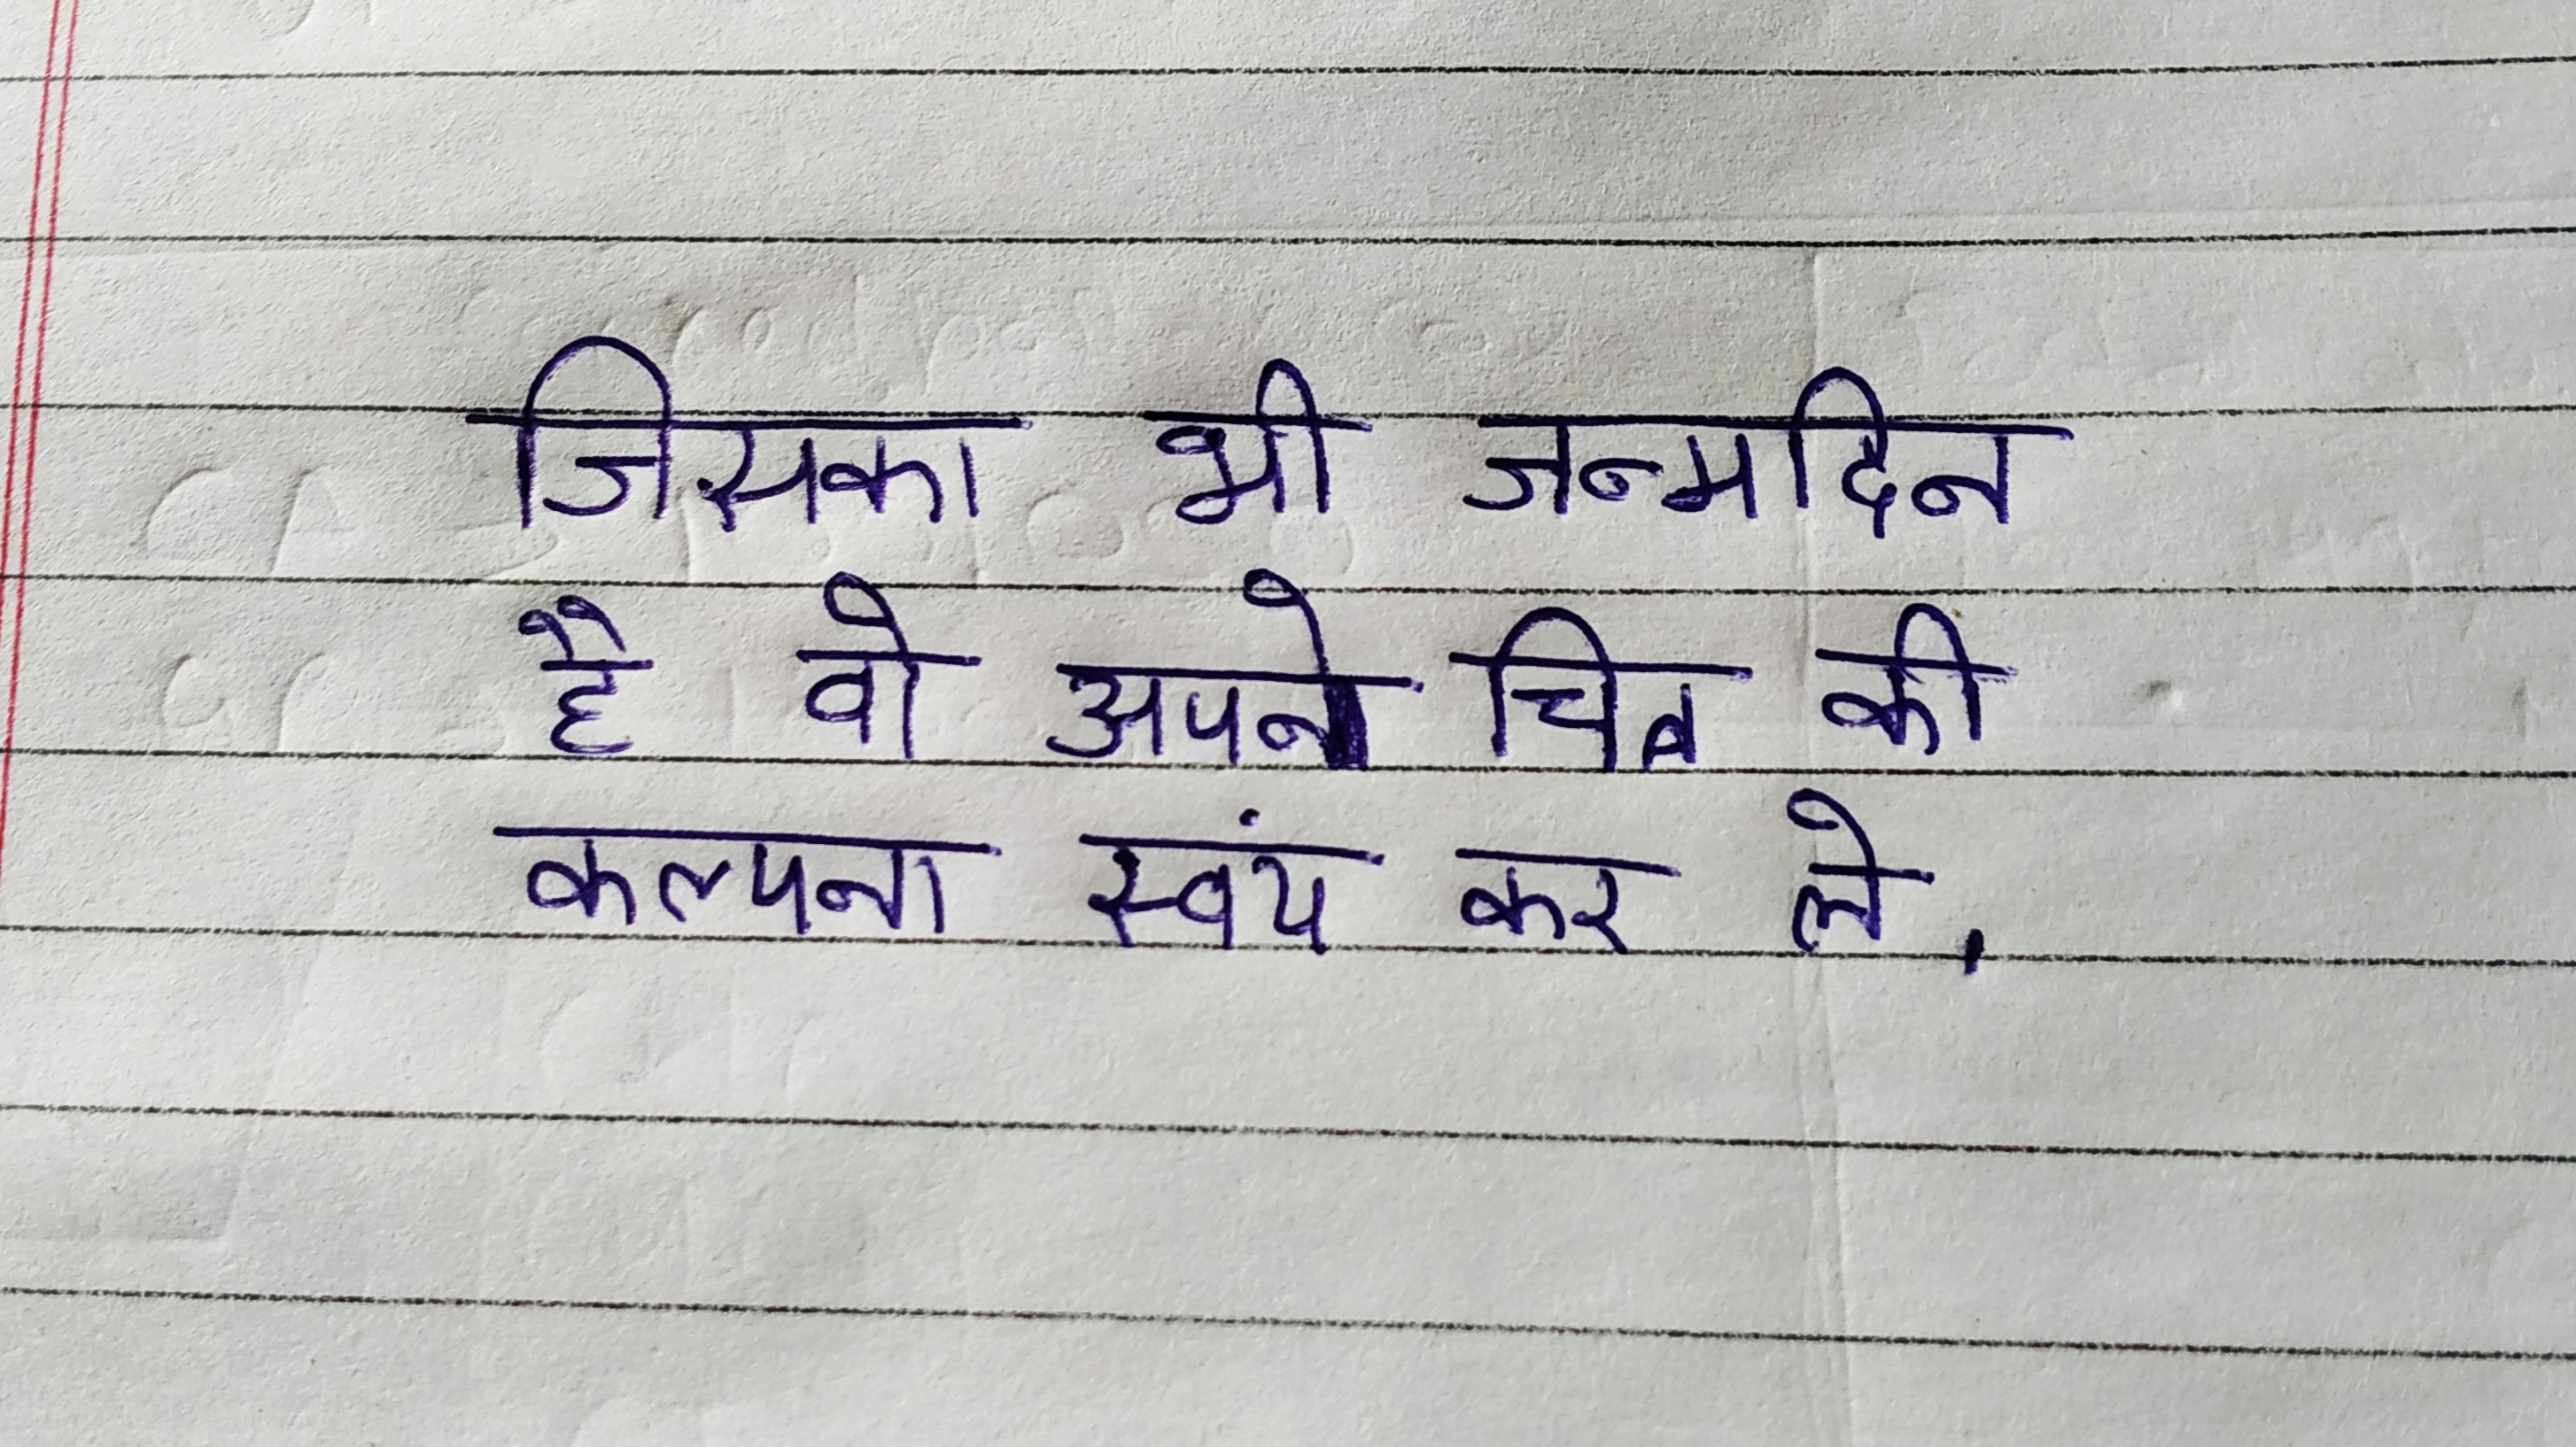 जिसका भी जन्मदिन
है वो अपने चित्र की
कल्पना स्वंय कर ले.